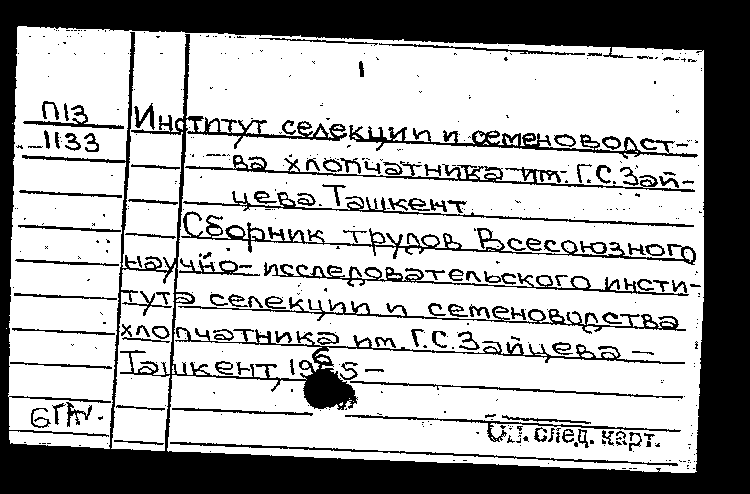 П13
1133
Институт селекции и семеноводст-
ва хлопчатника им. Г.С. Зай-
цева. Ташкент.
Сборник трудов Всесоюзного
научно-исследовательского инсти-
тута селекции и семеноводства
хлопчатника им. Г.С. Зайцева —
Ташкент,
См. след. карт.